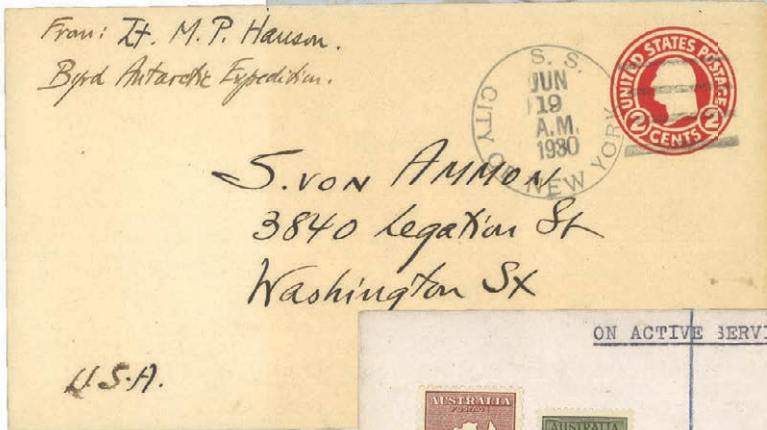 From: Lt. M. P. Hanson.
Byrd Antarctic Expedition.
S. S.
CITY OF NEW YORK
JUN
19
A.M.
1930
UNITED STATES POSTAGE
2 CENTS 2
S. VON AMMON
3840 Legation St
Washington
U.S.A.
ON ACTIVE SERVI
AUSTRALIA
POSTAGE
AUSTRALIA